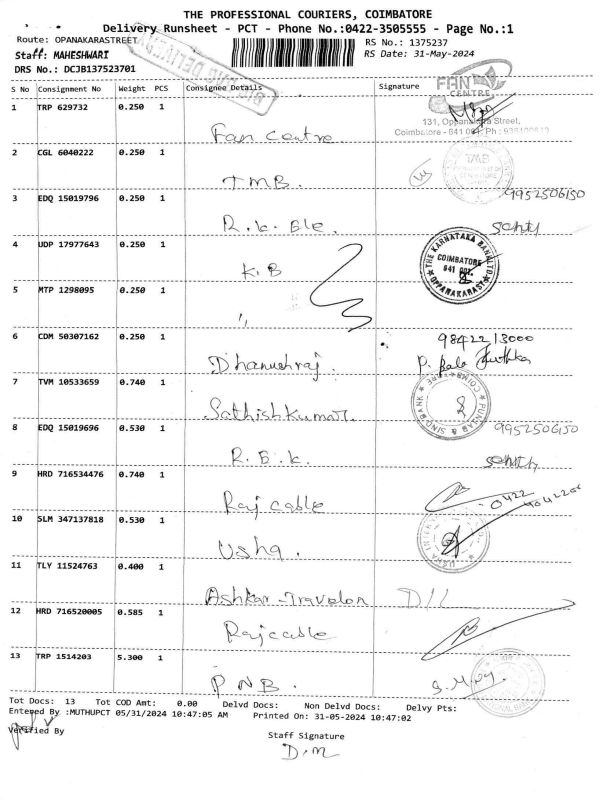 THE PROFESSIONAL COURIERS, COIMBATORE
Delivery Runsheet - PCT - Phone No.:0422-3505555 - Page No.:1
Route: OPANAKARASTREET
RS No.: 1375237
Staff: MAHESHWARI
RS Date: 31-May-2024
DRS No.: DCJB137523701
S No Consignment No Weight PCS Consignee Details Signature
FAN CENTRE
1 TRP 629732 0.250 1 Fan Centre
131, Oppanakara Street,
2 CGL 6040222 0.250 1 TMB. TMB
3 EDQ 15019796 0.250 1 R.k. Ele. 9952506150
4 UDP 17977643 0.250 1 K.B THE KARNATAKA BANK LTD COIMBATORE 641 001. OPPANAKARAST
5 MTP 1298095 0.250 1 "
6 CDM 50307162 0.250 1 Dhanushraj. 9842213000
7 TVM 10533659 0.740 1 Sathishkumar. PUNJAB & SIND BANK
8 EDQ 15019696 0.530 1 R.E.k. 9952506150
9 HRD 716534476 0.740 1 Raj cable
10 SLM 347137818 0.530 1 Usha.
11 TLY 11524763 0.400 1 Ashkar-Travelor
12 HRD 716520005 0.585 1 Rajcable
13 TRP 1514203 5.300 1 PNB.
Tot Docs: 13 Tot COD Amt: 0.00 Delvd Docs: Non Delvd Docs: Delvy Pts:
Entered By :MUTHUPCT 05/31/2024 10:47:05 AM Printed On: 31-05-2024 10:47:02
Verified By
Staff Signature
D.M